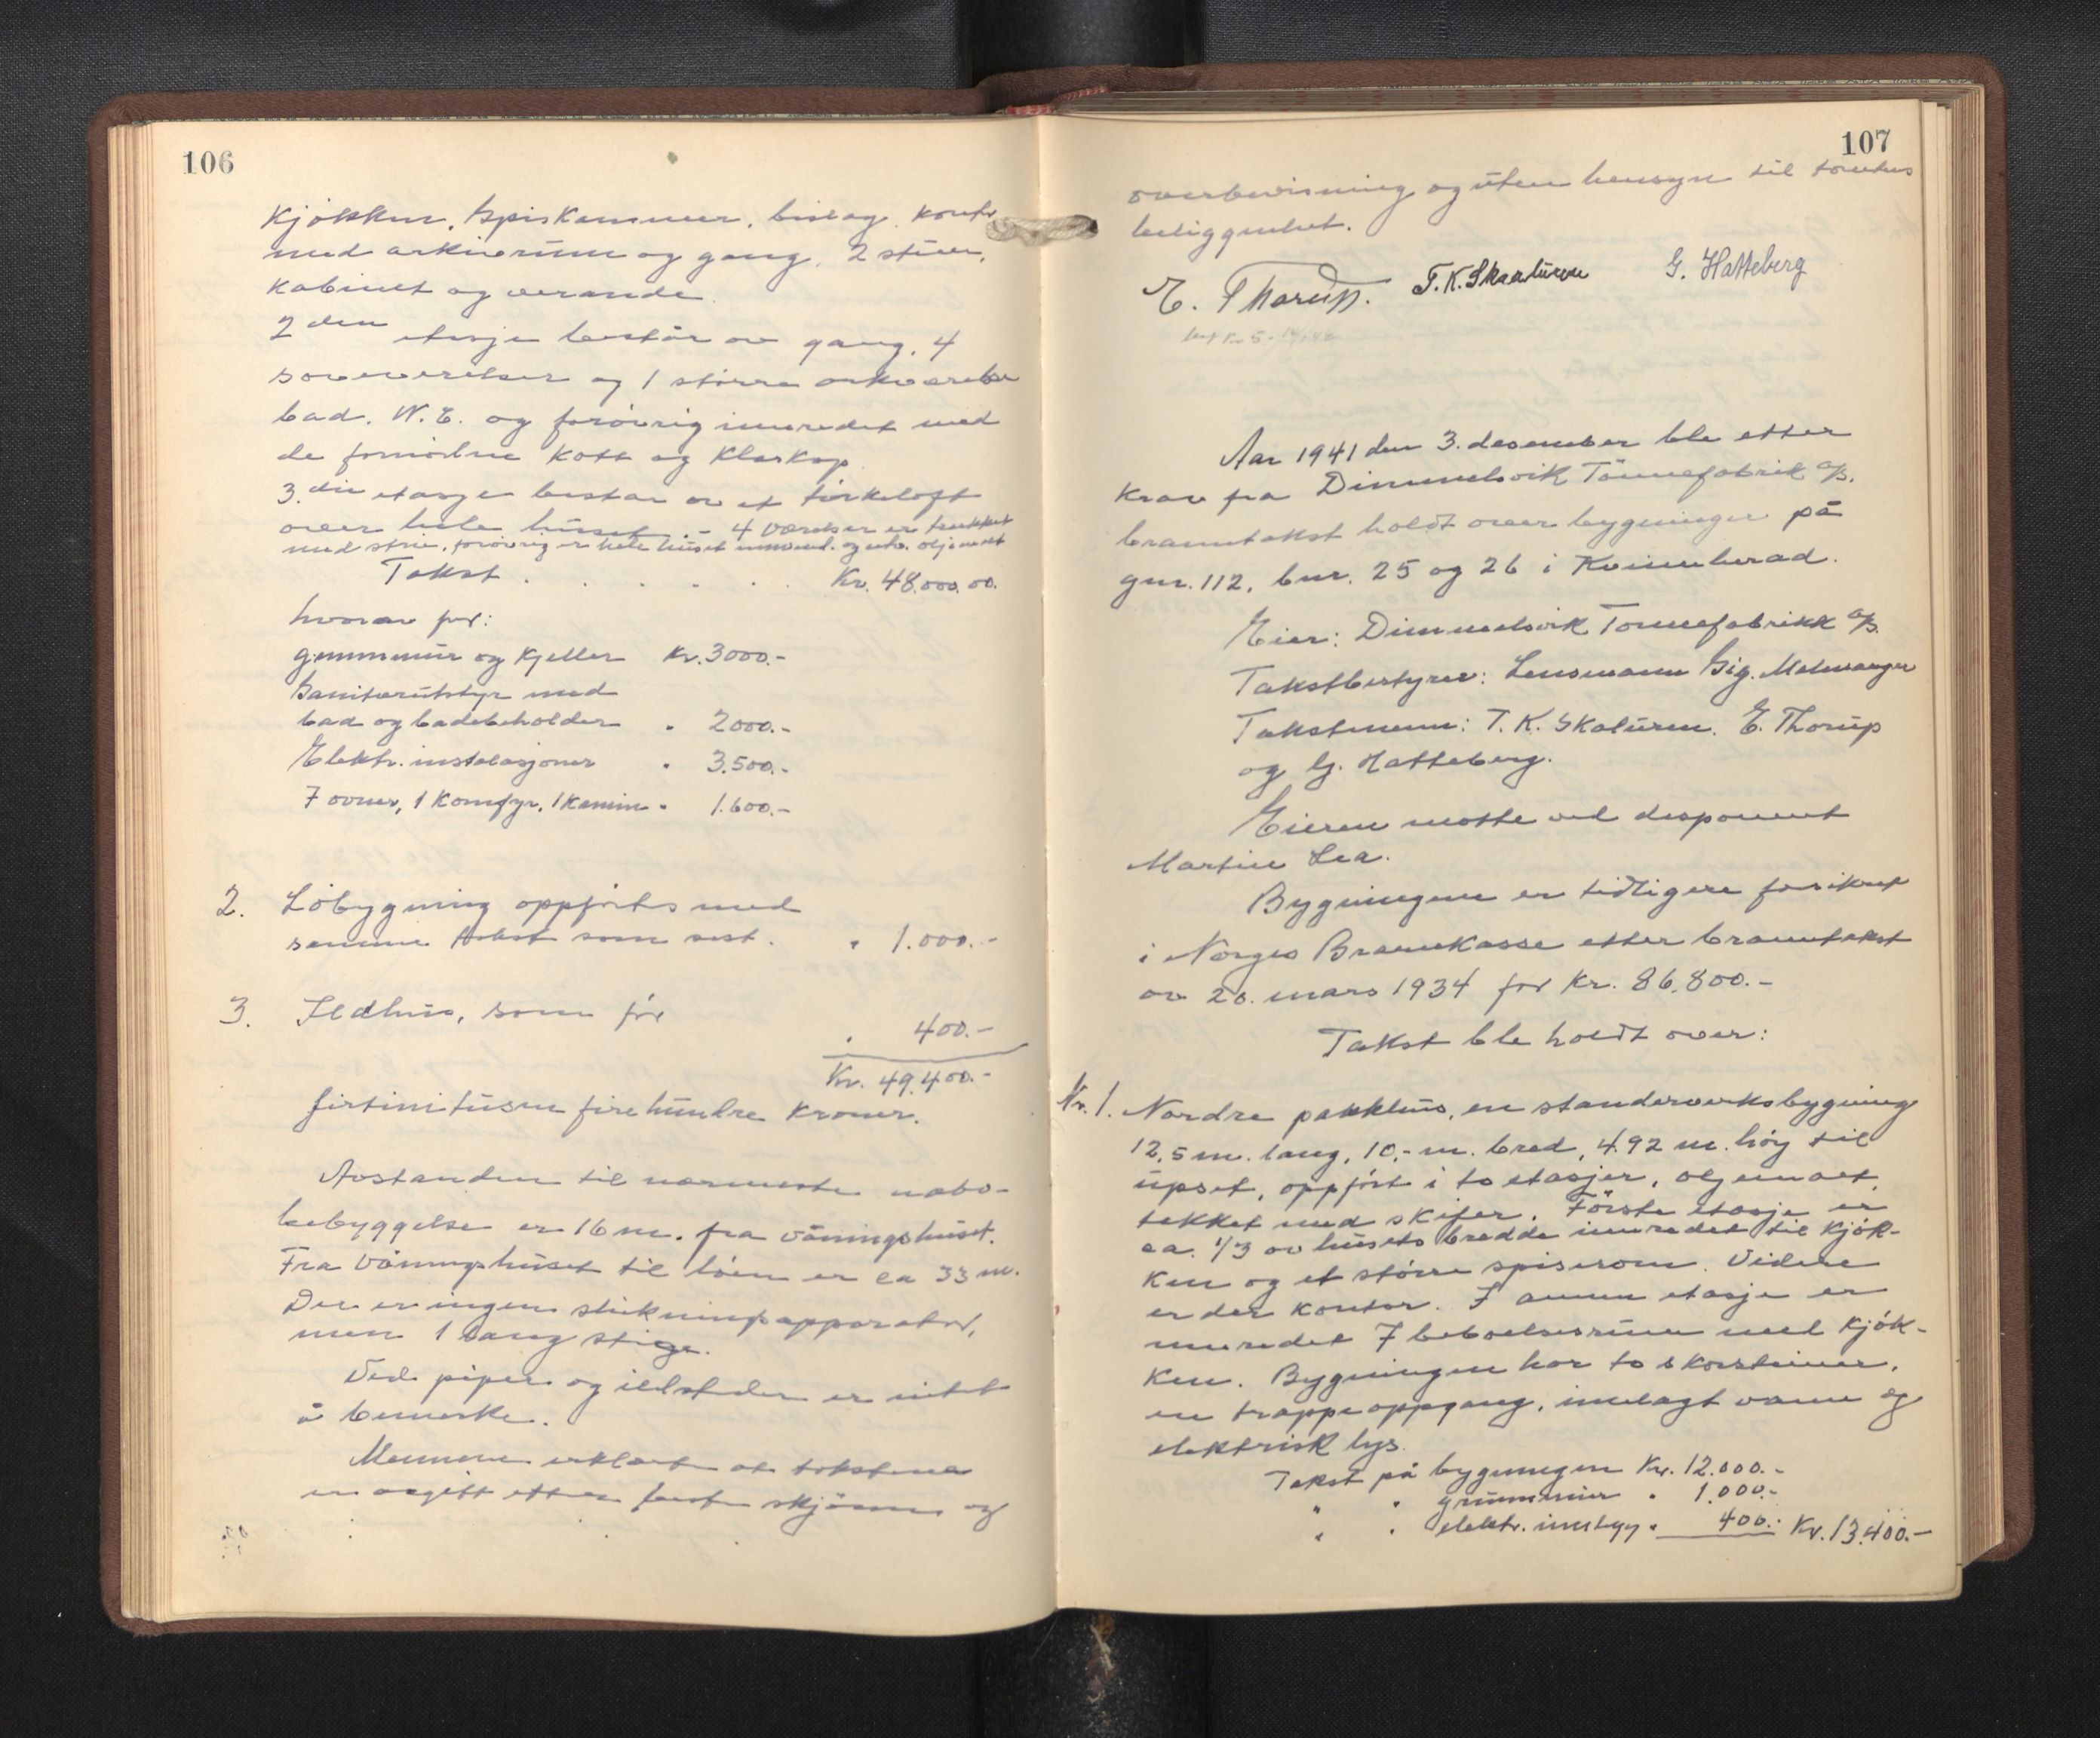 106
Kjøkken, spiskammer, bislag, kontor
med arkivrum og gang, 2 stuer,
kabinet og veranda.
2den etasje består av gang, 4
soveværelser og 1 større arkværelse
bad, W.C. og forøvrig innredet med
de fornødne kott og kleskap.
3.die etasje består av et tørkeloft
over hele huset. - 4 værelser er trukket
med strie, forøvrig er hele huset innvend. og utv. oljemalt
Takst . . . . . . Kr. 48.000.00.
hvorav for:
grunnmur og kjeller Kr. 3000.-
Sanitærutstyr med
bad og badebeholder " 2000.-
Elektr. installasjoner " 3.500.-
7 ovner, 1 Komfyr, 1 kamin " 1.600.-
2. Løbygning oppførtes med
samme takst som sist. " 1.000.-
3. Ildhus, som før " 400.-
Kr. 49.400.-
førtinitusen firehundre kroner.
Avstanden til nærmeste nabo-
bebyggelse er 16 m. fra våningshuset.
Fra våningshuset til løen er ca 33 m.
Der er ingen slukningsapparater,
men 1 lang stige.
Ved piper og ildsteder er intet
å bemerke.
Mennene erklærte at takstene
er avgitt etter beste skjønn og
107
overbevisning og uten hensyn til tomtens
beliggenhet.
E. Thorup. T. K. Skaaluren G. Hatteberg
Aar 1941 den 3. desember ble etter
krav fra Dimmelsvik Tønnefabrik A/S.
branntakst holdt over bygninger på
gnr. 112, bnr. 25 og 26 i Kvinnherad.
Eier: Dimmelsvik Tønnefabrikk A/S.
Takstbestyrer: Lensmann Sig. Melmanger
Takstmenn: T. K. Skaluren, E. Thorup
og G. Hatteberg.
Eieren møtte ved disponent
Martin Lea.
Bygningene er tidligere forsikret
i Norges Brannkasse etter branntakst
av 20. mars 1934 for Kr. 86.800.-
Takst ble holdt over:
Nr. 1. Nordre pakkhus, en standerverksbygning
12,5 m. lang, 10,- m. bred, 4.92 m. høy til
upset, oppført i to etasjer, oljemalt,
tekket med skifer. Første etasje er
ca. 1/3 av husets bredde innredet til kjøk-
ken og et større spiserom. Videre
er der kontor. I annen etasje er
innredet 7 beboelsesrum med kjøk-
ken. Bygningen har to skorsteiner,
en trappeoppgang, innlagt vann og
elektrisk lys.
Takst på bygningen Kr. 12.000.-
" " grunnmur " 1.000.-
" " elektr. innlegg " 400.- Kr. 13.400.-